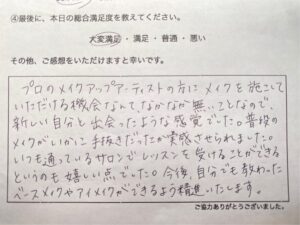 ④最後に、本日の総合満足度を教えてください。
大変満足・満足・普通・悪い
その他、ご感想をいただけますと幸いです。
プロのメイクアップアーティストの方にメイクを施して
いただける機会なんて、なかなか無いことなので、
新しい自分と出会ったような感覚でした。普段の
メイクがいかに手抜きだったか実感させられました。
いつも通っているサロンでレッスンを受けることができる
というのも嬉しい点でした。今後、自分でも教わった
ベースメイクやアイメイクができるよう精進いたします。
ご協力ありがとうございました。